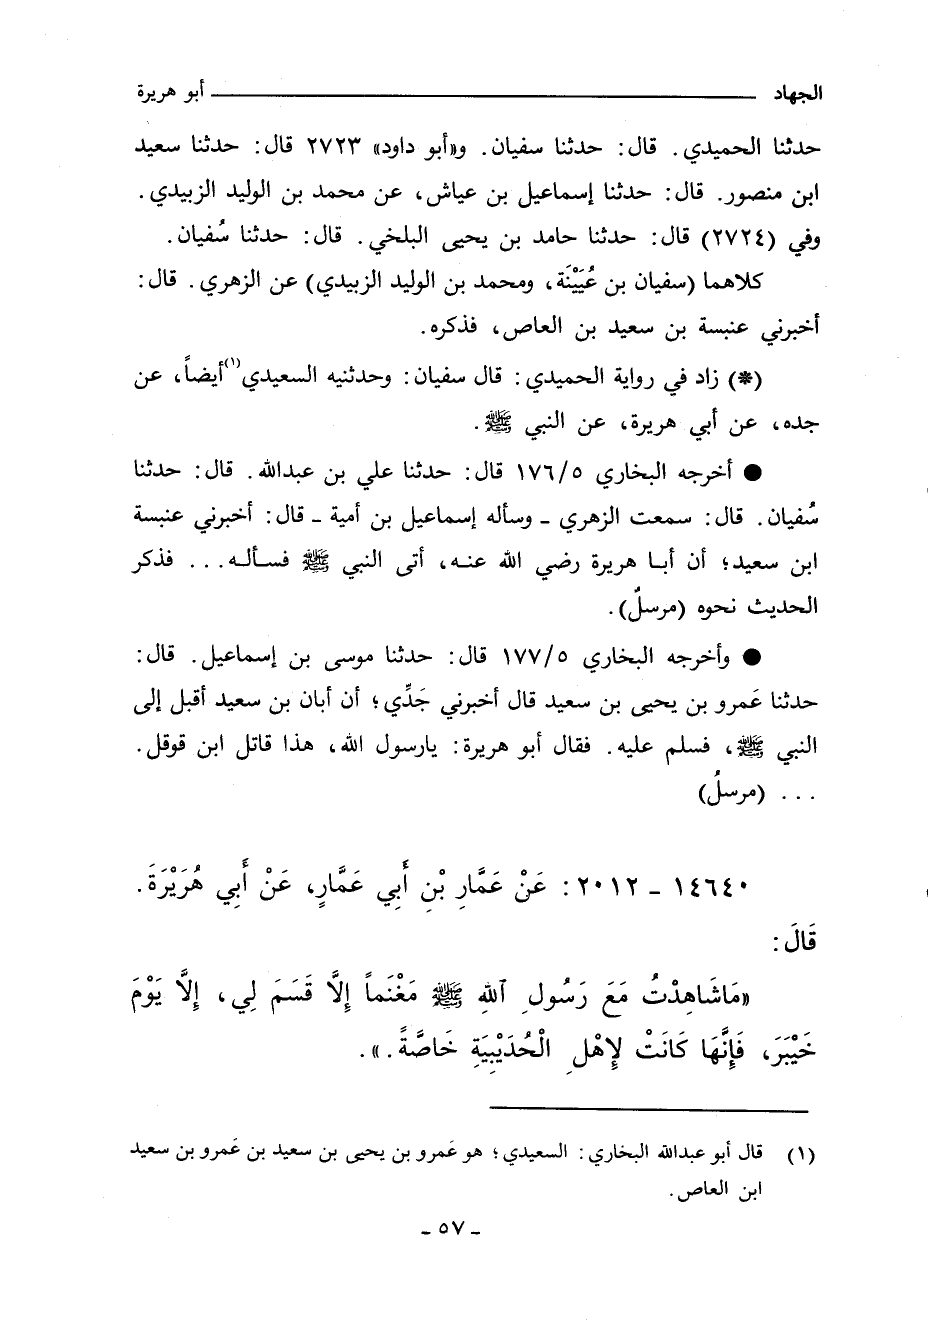 الجهاد ــــــــــــــــــــ أبو هريرة
حدثنا الحميدي. قال: حدثنا سفيان. و«أبو داود» ٢٧٢٣ قال: حدثنا سعيد
ابن منصور. قال: حدثنا إسماعيل بن عياش، عن محمد بن الوليد الزبيدي.
وفي (٢٧٢٤) قال: حدثنا حامد بن يحيى البلخي. قال: حدثنا سُفيان.
كلاهما (سفيان بن عُيَيْنَة، ومحمد بن الوليد الزبيدي) عن الزهري. قال:
أخبرني عنبسة بن سعيد بن العاص، فذكره.
(*) زاد في رواية الحميدي: قال سفيان: وحدثنيه السعيدي(١) أيضاً، عن
جده، عن أبي هريرة، عن النبي ﷺ.
● أخرجه البخاري ١٧٦/٥ قال: حدثنا علي بن عبدالله. قال: حدثنا
سُفيان. قال: سمعت الزهري ـ وسأله إسماعيل بن أمية ـ قال: أخبرني عنبسة
ابن سعيد؛ أن أبـا هريرة رضي الله عنـه، أتى النبي ﷺ فسـألـه... فذكر
الحديث نحوه (مرسلٌ).
● وأخرجه البخاري ١٧٧/٥ قال: حدثنا موسى بن إسماعيل. قال:
حدثنا عَمرو بن يحيى بن سعيد قال أخبرني جَدِّي؛ أن أبان بن سعيد أقبل إلى
النبي ﷺ، فسلم عليه. فقال أبو هريرة: يارسول الله، هذا قاتل ابن قوقل.
... (مرسلُ)
١٤٦٤٠ ـ ٢٠١٢: عَنْ عَمَّارِ بْنِ أَبي عَمَّارٍ، عَنْ أَبي هُرَيْرَةَ.
قَالَ:
«مَاشَاهِدْتُ مَعَ رَسُولِ ٱللهِ ﷺ مَغْنَماً إِلَّا قَسَمَ لِي، إِلَّا يَوْمَ
خَيْبَرَ، فَإِنَّهَا كَانَتْ لإِهْلِ الْحُدَيْبِيَةِ خَاصَّةً.».
(١) قال أبو عبدالله البخاري: السعيدي؛ هو عَمرو بن يحيى بن سعيد بن عَمرو بن سعيد
ابن العاص.
ـ ٥٧ ـ